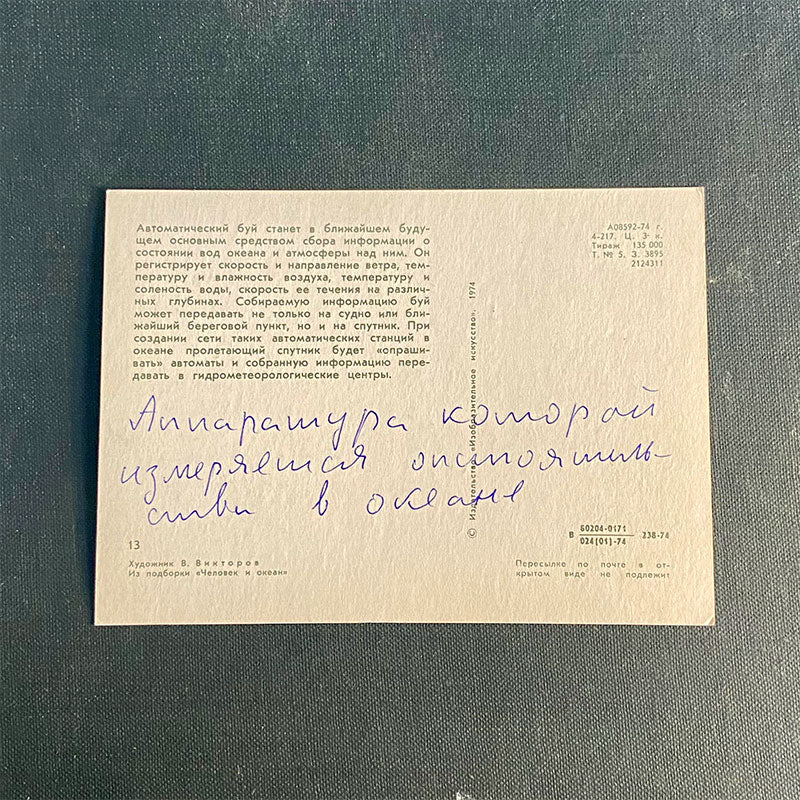 Автоматический буй станет в ближайшем буду-
щем основным средством сбора информации о
состоянии вод океана и атмосферы над ним. Он
регистрирует скорость и направление ветра, тем-
пературу и влажность воздуха, температуру и
соленость воды, скорость ее течения на различ-
ных глубинах. Собираемую информацию буй
может передавать не только на судно или бли-
жайший береговой пункт, но и на спутник. При
создании сети таких автоматических станций в
океане пролетающий спутник будет «опраши-
вать» автоматы и собранную информацию пере-
давать в гидрометеорологические центры.
А08592-74 г.
4-217. Ц. 3 к.
Тираж 135 000
Т. № 5. З. 3895
2124311
© Издательство «Изобразительное искусство». 1974
Аппаратура которой
измеряется
в океане
13
Художник В. Викторов
Из подборки «Человек и океан»
В 60204-0171 238-74
024(01)-74
Пересылке по почте в от-
крытом виде не подлежит